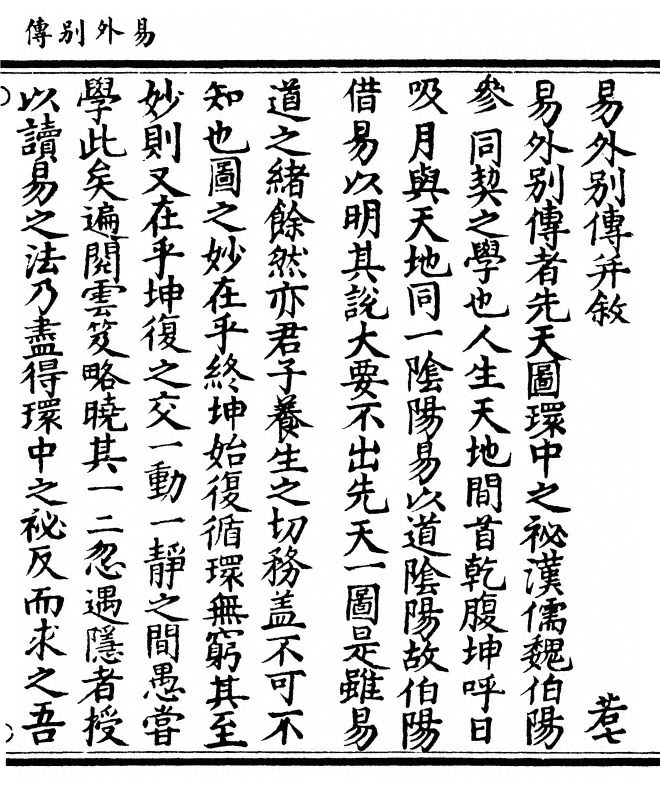 易外别傳
易外别傳并敘
若七
易外别傳者先天圖環中之祕漢儒魏伯陽
參同契之學也人生天地間首乾腹坤呼日
吸月與天地同一隂陽易以道隂陽故伯陽
借易以明其說大要不出先天一圖是雖易
道之緒餘然亦君子養生之切務盖不可不
知也圖之妙在乎終坤始復循環無窮其至
妙則又在乎坤復之交一動一靜之間愚嘗
學此矣遍閱雲笈略曉其一二忽遇隱者授
以讀易之法乃盡得環中之祕反而求之吾